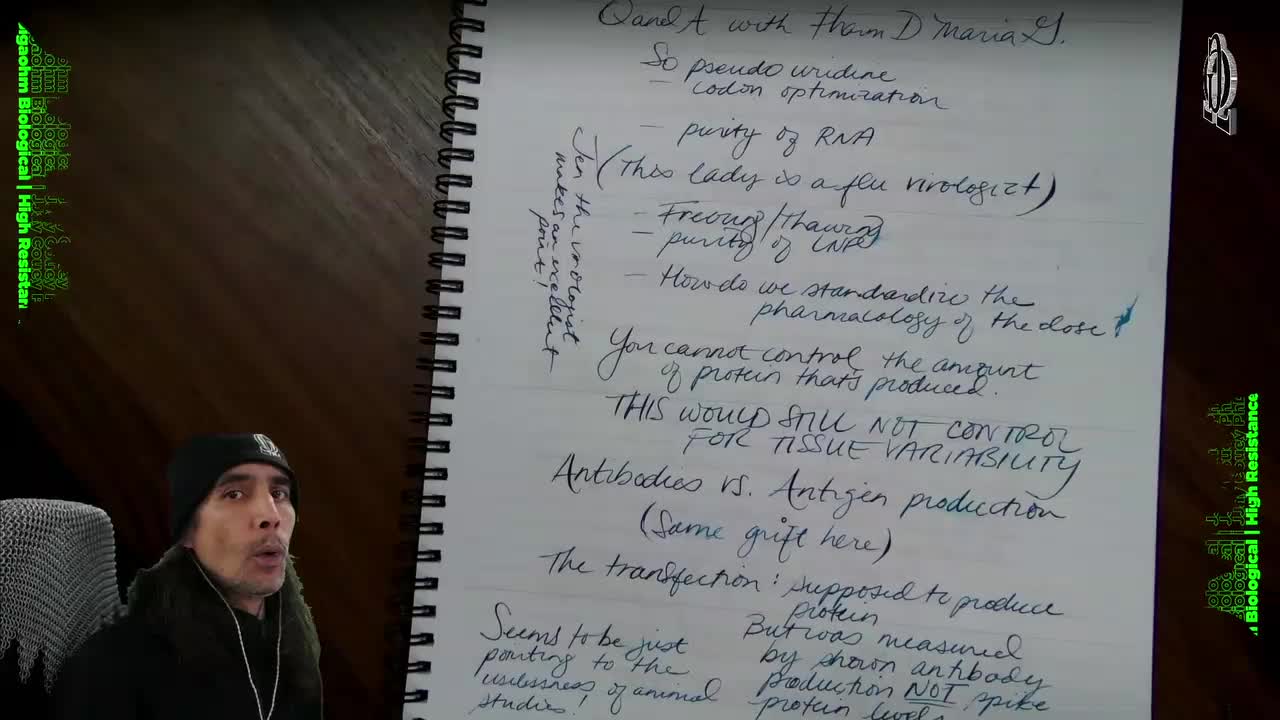 Q and A with PharmD Maria G.
So pseudo uridine
— codon optimization
— purity of RNA
(This lady is a flu virologist)
Jen the virologist
makes an excellent
point!
— Freezing/Thawing
— purity of LNP
— How do we standardize the
pharmacology of the dose
You cannot control the amount
of protein thats produced.
THIS WOULD STILL NOT CONTROL
FOR TISSUE VARIABILITY
Antibodies vs. Antigen production
(Same grift here)
The transfection: supposed to produce
protein
But was measured
by shown antibody
production NOT spike
protein levels
Seems to be just
pointing to the
uselessness of animal
studies!
Biological | High Resistance
Biological | High Resistance